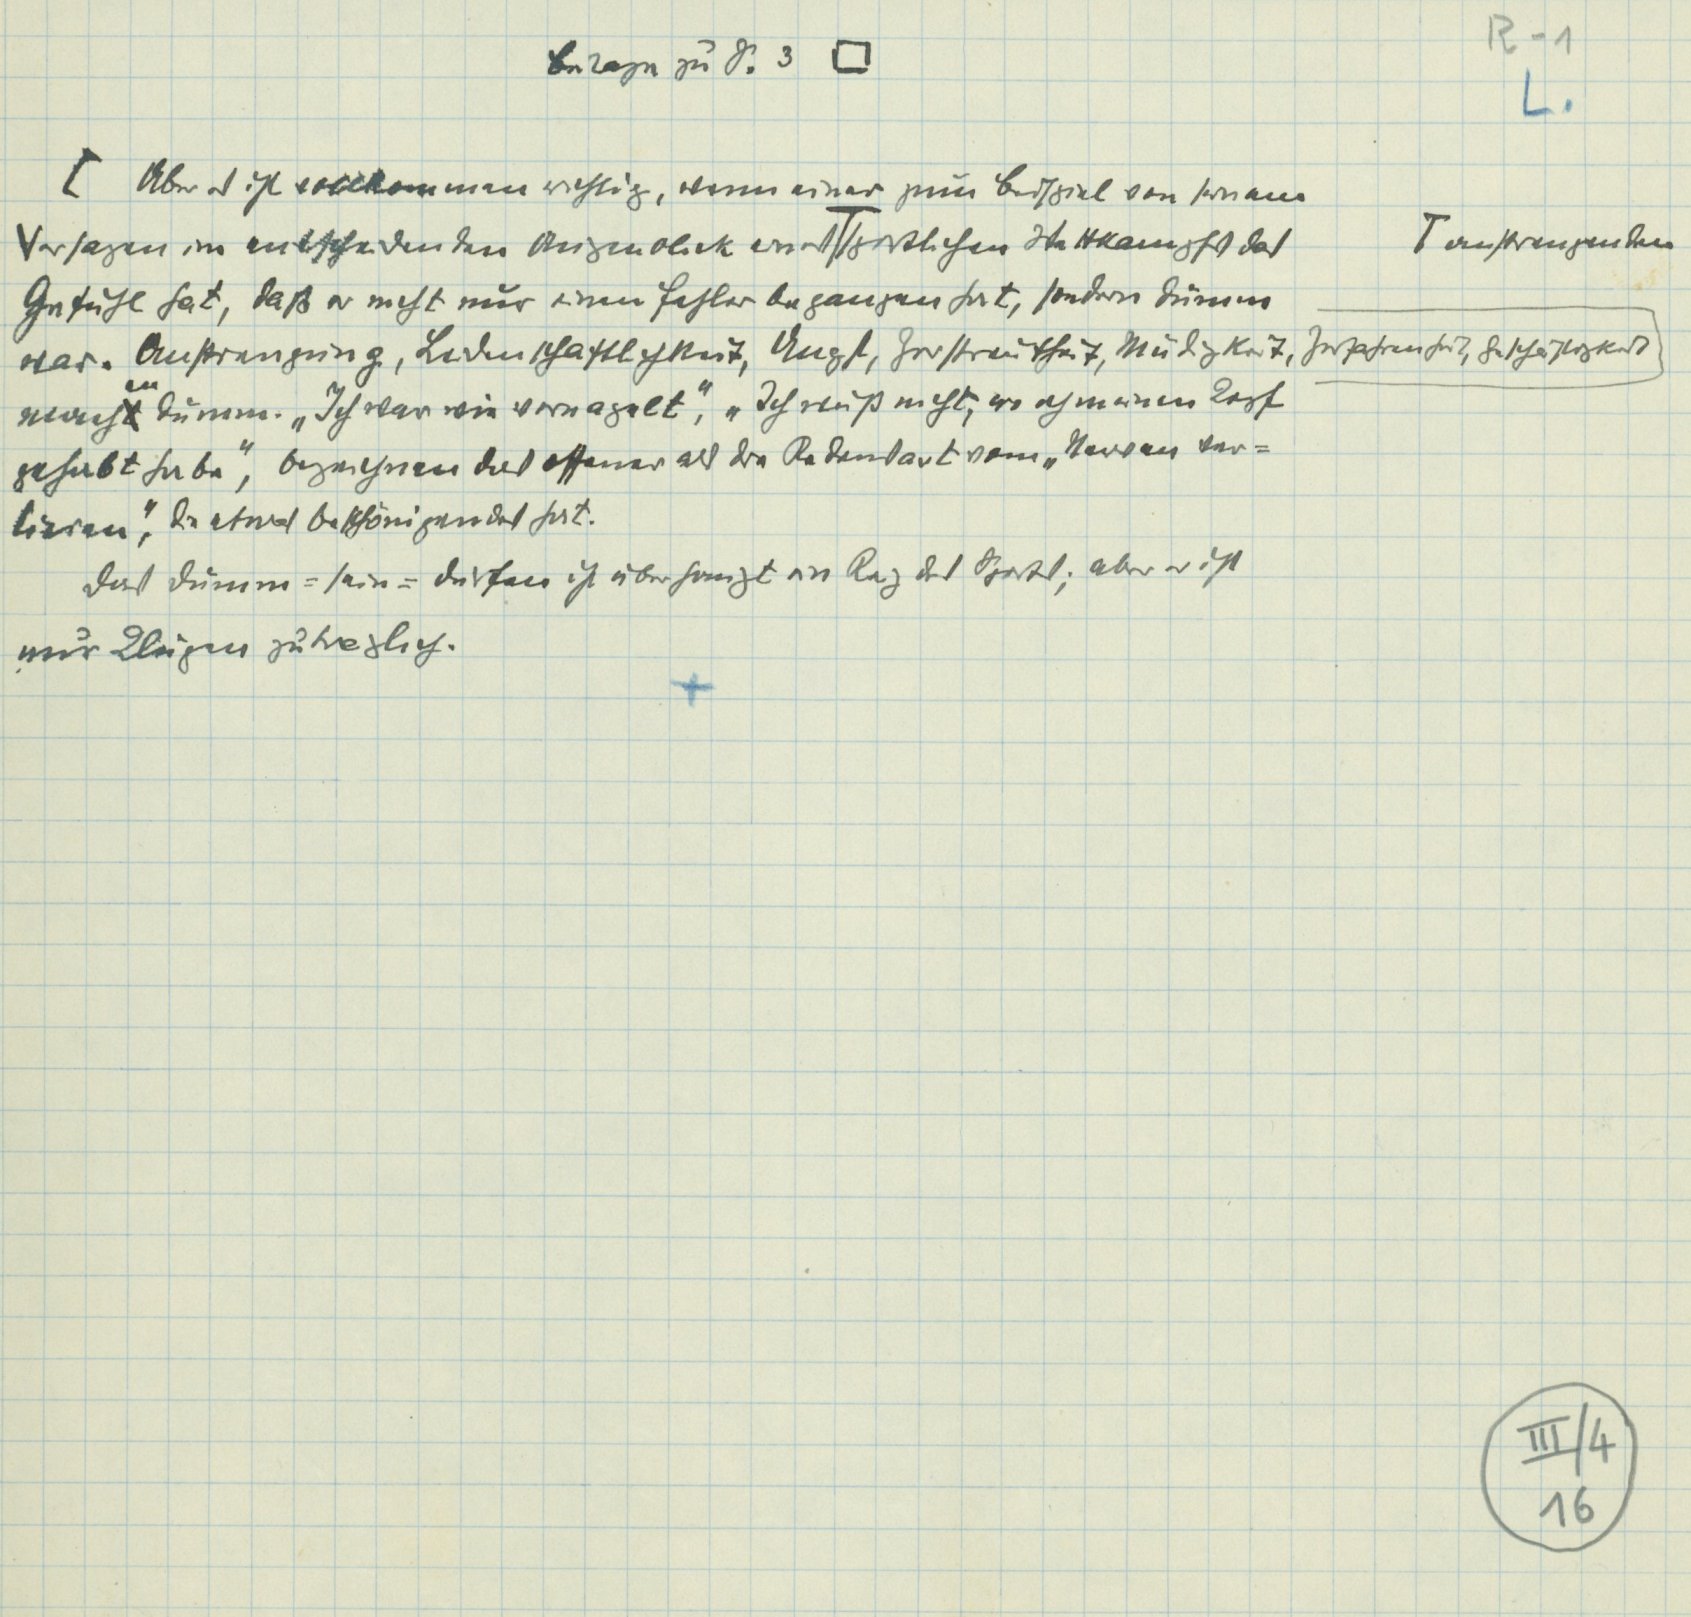 Beilage zu S. 3 □
R-1
L.
[ Aber es ist vollkommen richtig, wenn einer zum Beispiel von seinem
Versagen im entscheidenden Augenblick eines ⊤ sportlichen Wettkampfes das
⊤ anstrengenden
Gefühl hat, daß er nicht nur einen Fehler begangen hat, sondern dumm
war. Anstrengung, Leidenschaftlichkeit, Angst, Zerstreutheit, Müdigkeit, Zerfahrenheit, Geschäftigkeit
machen dumm. „Ich war wie vernagelt“, „Ich weiß nicht, wo ich meinen Kopf
gehabt habe“, bezeichnen das offener als die Redensart vom „Nerven ver=
lieren“, die etwas beschönigendes hat.
Das Dumm=sein=dürfen ist überhaupt ein Reiz des Sports; aber er ist
nur Klugen zuträglich.
+
III/4
16